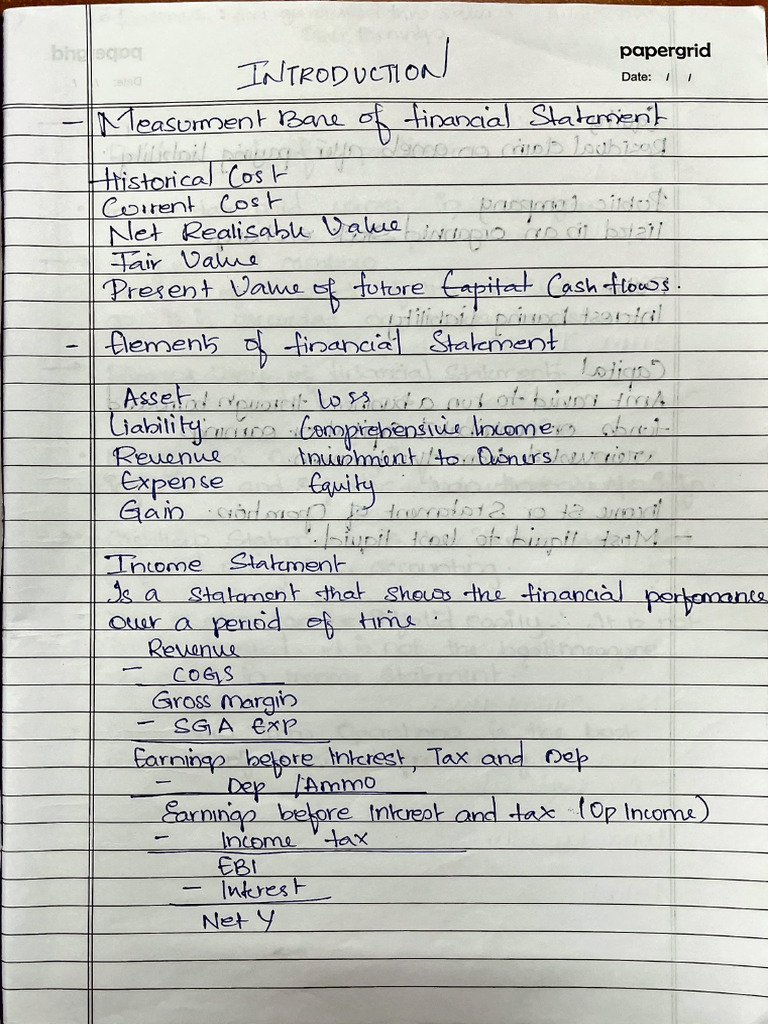 papergrid
Date: / /
INTRODUCTION
- Measurment Base of financial Statement
Historical Cost
Current Cost
Net Realisable Value
Fair Value
Present Value of future Capital Cash flows.
- Elements of financial Statement
Asset Loss
Liability Comprehensive Income
Revenue Investment to Owners
Expense Equity
Gain
Income Statement
Is a Statment that shows the financial perfomance
over a period of time.
Revenue
- COGS
Gross margin
- SGA Exp
Earnings before Interest, Tax and Dep
- Dep /Ammo
Earnings before Interest and tax (Op Income)
- Income tax
EBI
- Interest
Net Y